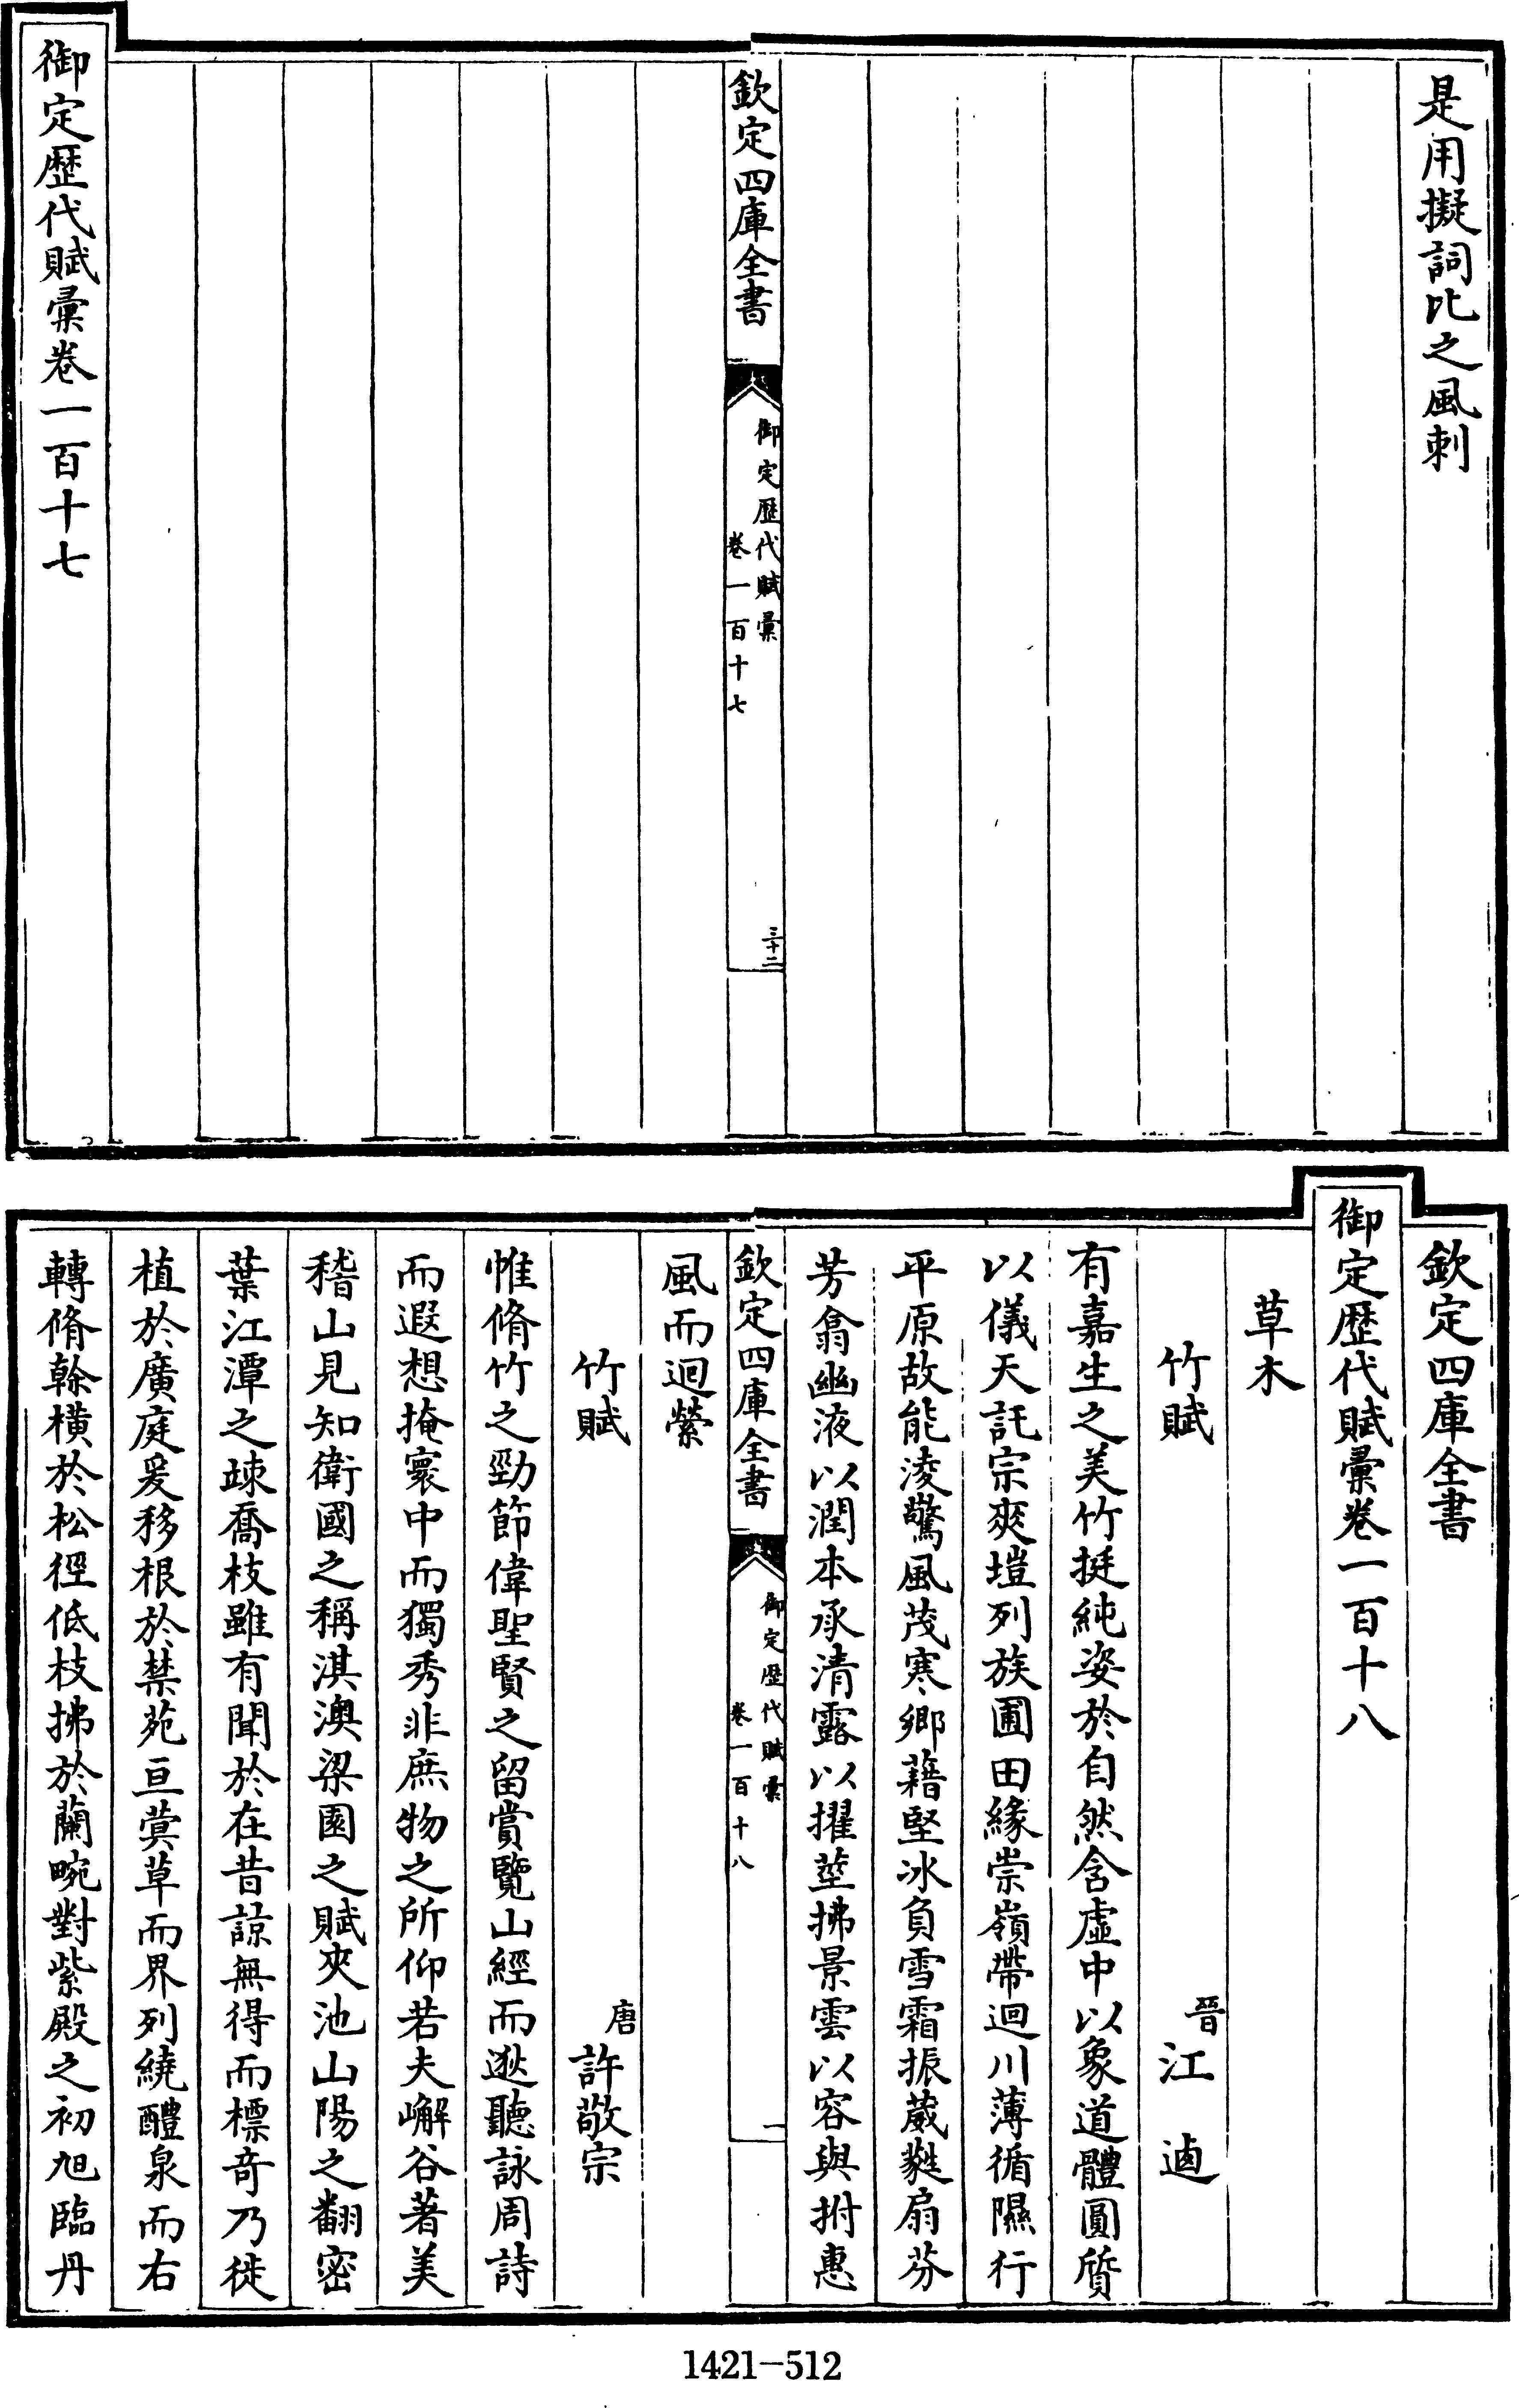 是用擬詞比之風刺
欽定四庫全書
御定歷代賦彙
卷一百十七
三十二
御定歷代賦彙卷一百十七
欽定四庫全書
御定歷代賦彙卷一百十八
草木
竹賦 晉江逌
有嘉生之美竹挺純姿於自然含虛中以象道體圓質
以儀天託宗爽塏列族圃田緣崇嶺帶迴川薄循隰行
平原故能淩驚風茂寒鄉藉堅冰負雪霜振葳蕤扇芬
芳翕幽液以潤本承清露以擢莖拂景雲以容與拊惠
欽定四庫全書
御定歷代賦彙
卷一百十八
一
風而迴縈
竹賦 唐許敬宗
惟脩竹之勁節偉聖賢之留賞覽山經而逖聽詠周詩
而遐想掩寰中而獨秀非庶物之所仰若夫嶰谷著美
稽山見知衛國之稱淇澳梁園之賦夾池山陽之翻密
葉江潭之竦喬枝雖有聞於在昔諒無得而標奇乃徙
植於廣庭爰移根於禁苑亘蓂草而界列繞醴泉而右
轉脩幹橫於松徑低枝拂於蘭畹對紫殿之初旭臨丹
1421-512